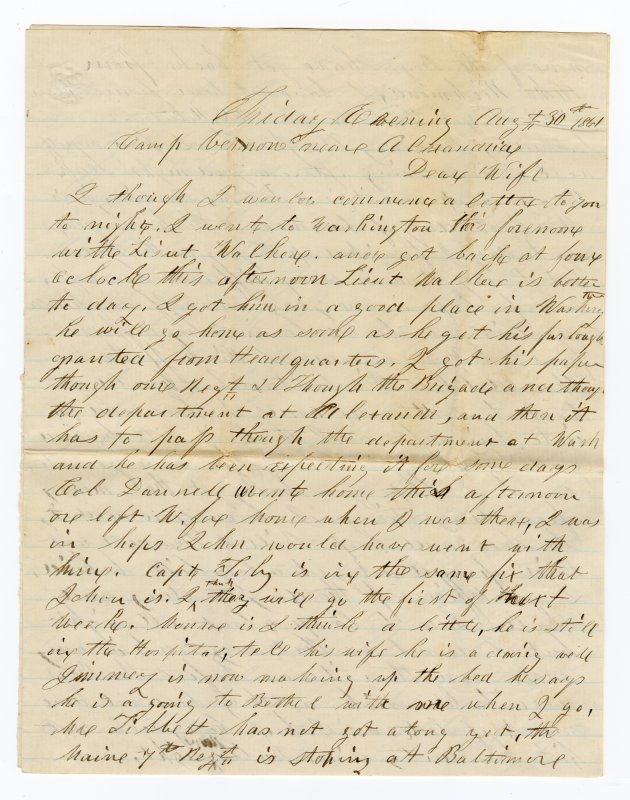 Friday Evening Aug 30th 1861
Camp Vernon neare Alxandria
Dear Wife
I though I would commence a letter to you
to night. I went to Washington this forenone
withe Lieut, Walkere. and got back at foure
oclock this afternoon Lieut Walkere is better
to day. I got him in a good place in Washing
he will go home as soone as he get his furlough
granted from Headquarters. I got his paper
though oure Regt & Though the Brigade and though
the department at Alexandri, and then it
has to pass though the department at Wash
and he has been expecting it fore some days
Col Dunnell went home this afternoon
ore left W. fore home when I was there, I was
in hops John would have went with
him. Capt Toby is in the same fix that
John is. I think they will go the first of next
weeke. Monroe is I think a little, he is still
in the Hospital, tell his wife he is a doing well
Jimmey is now makeing up the bed he says
he is a going to Bethel with me when I go,
Mre Tibbett has not got along yet, the
Maine 7th Regt is stoping at Baltimore